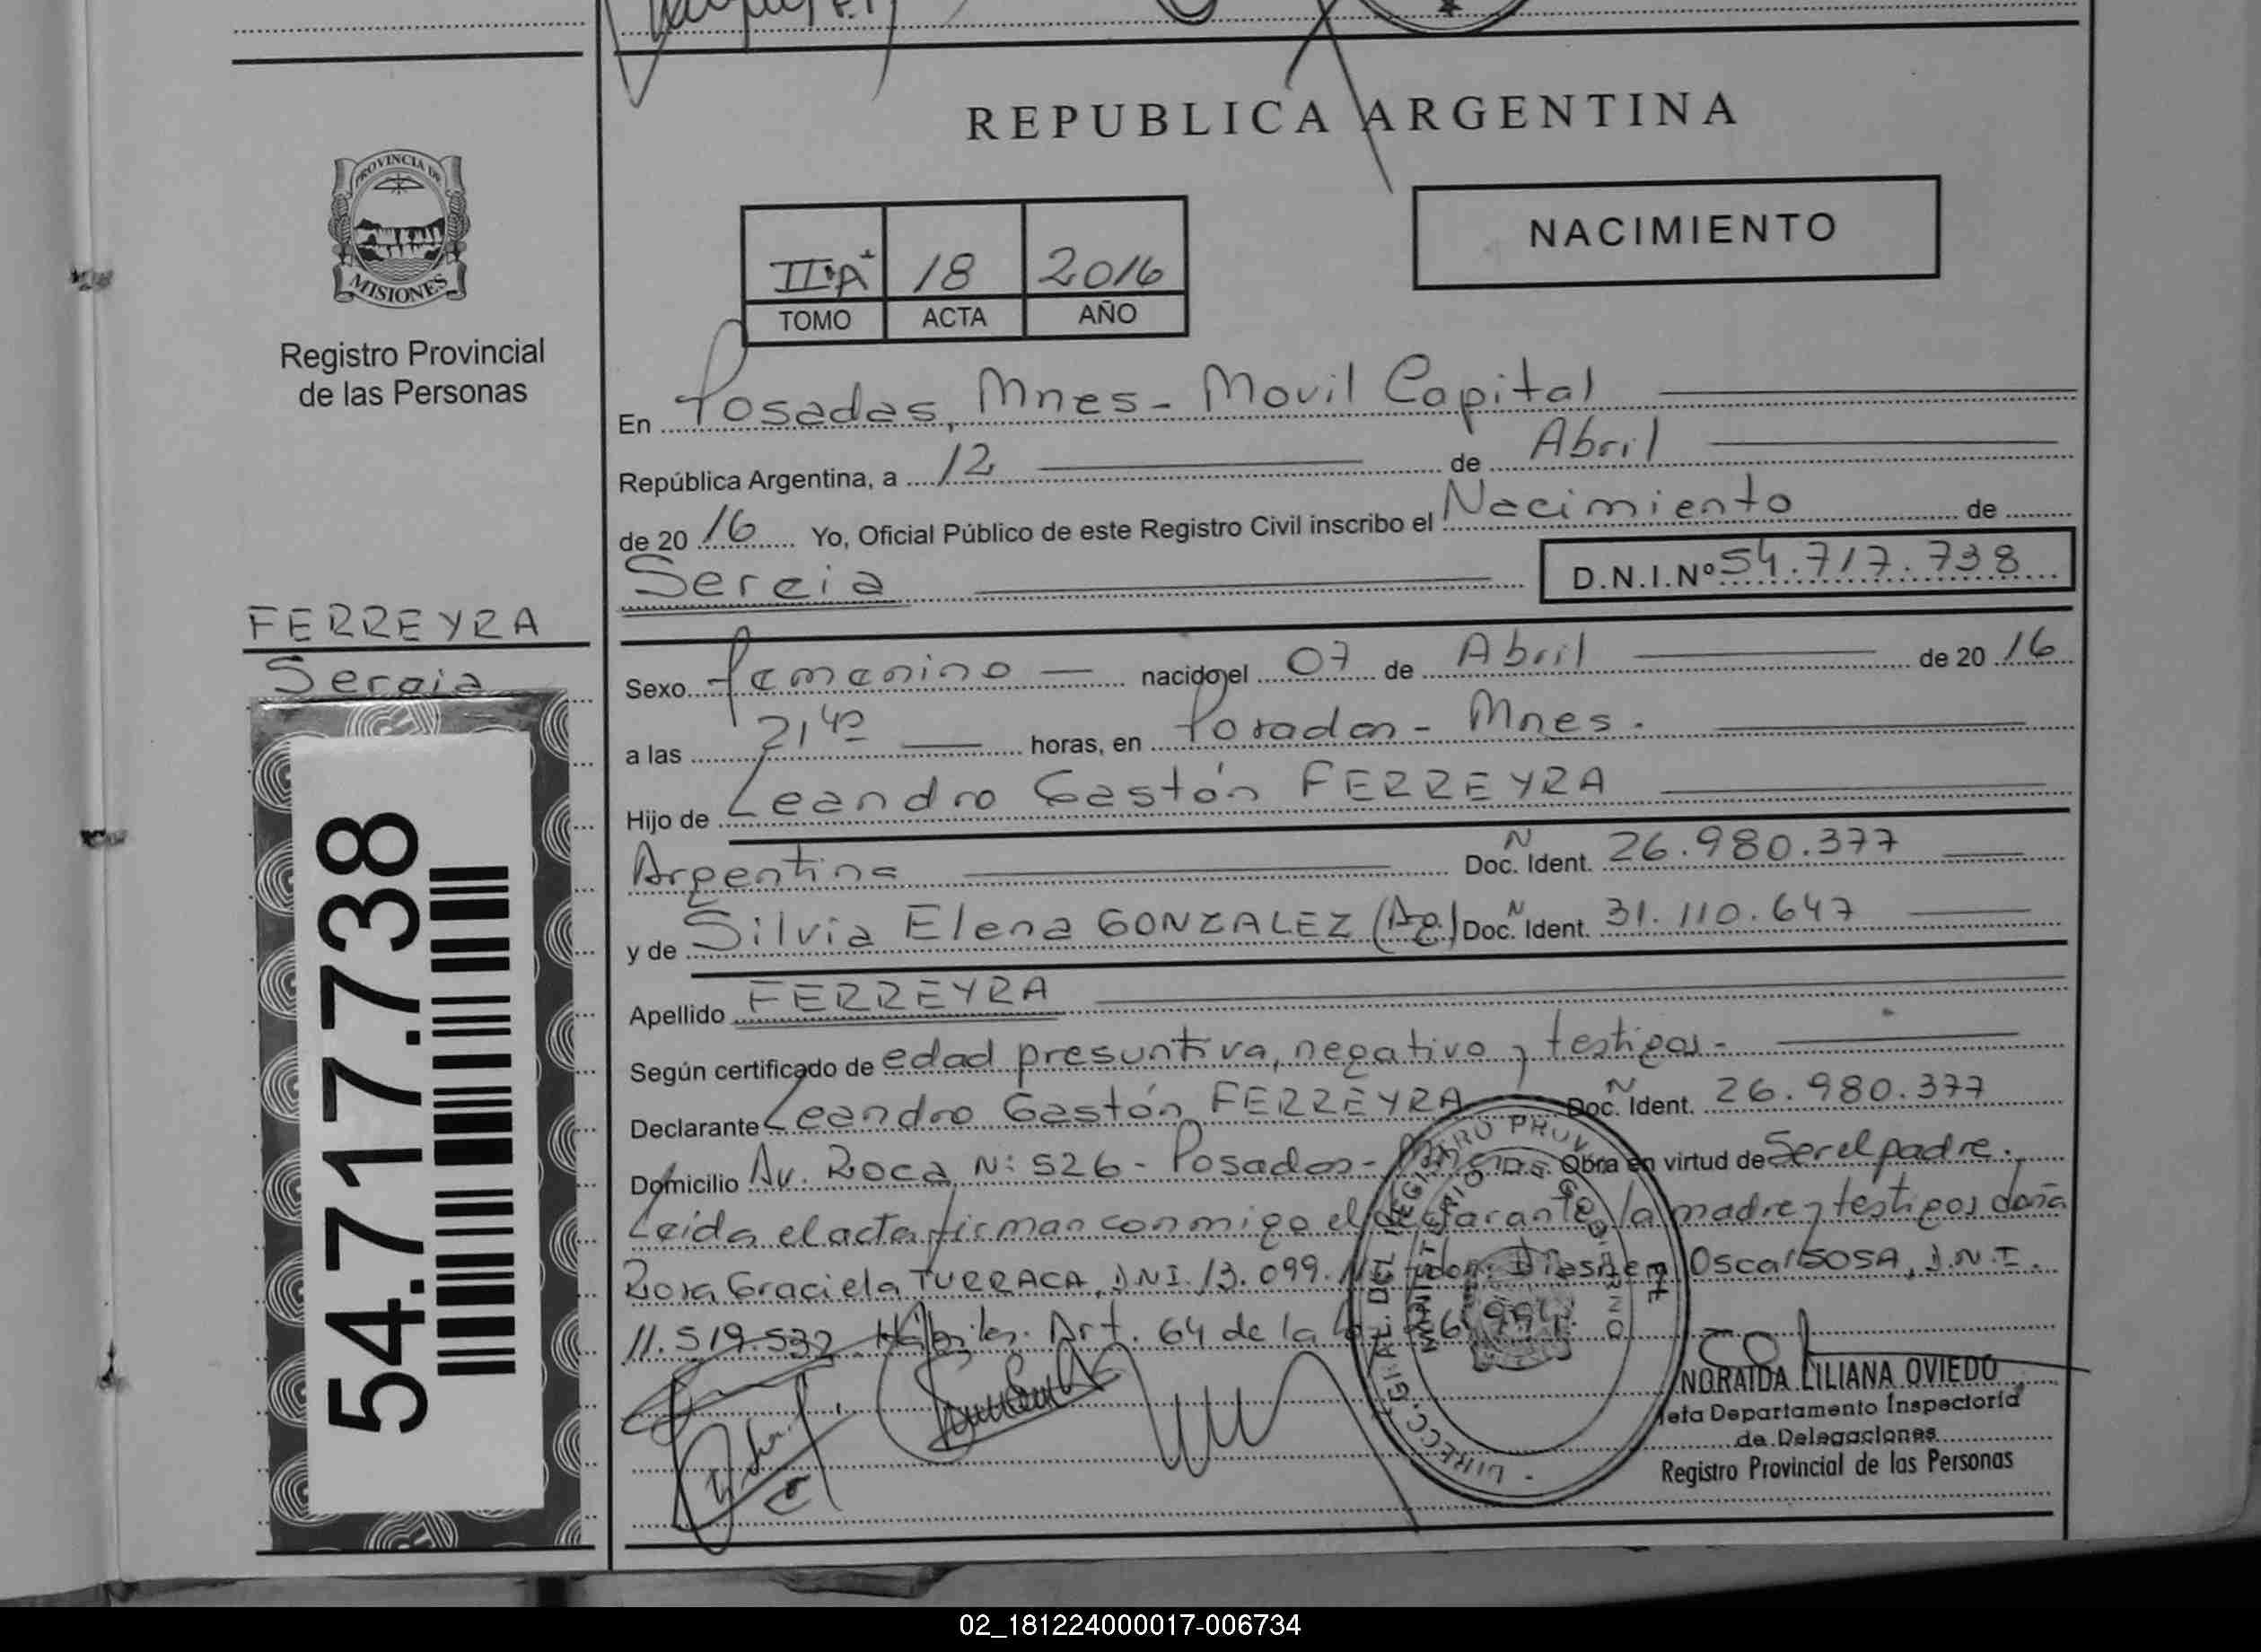 REPUBLICA ARGENTINA
PROVINCIA DE
MISIONES
Registro Provincial
de las Personas
NACIMIENTO
II·A 18 2016
TOMO ACTA AÑO
En Posadas, Mnes - Movil Capital
República Argentina, a 12 de Abril
de 20 16 Yo, Oficial Público de este Registro Civil inscribo el Nacimiento de
D.N.I.Nº 54.717.738
FERREYRA
Sexo femenino nacido el 07 de Abril de 20 16
a las 21 horas, en Posadas - Mnes.
Hijo de Leandro Gastón FERREYRA
Argentina Doc. Ident. N 26.980.377
y de Silvia Elena GONZALEZ (Arg.) Doc. Ident. N 31.110.647
Apellido FERREYRA
Según certificado de edad presuntiva, negativo y testigos -
Declarante Leandro Gastón FERREYRA Doc. Ident. N 26.980.377
Domicilio Av. Roca N: 526 - Posadas - Obra en virtud de Ser el padre.
Leida el acta firman conmigo el declarante, la madre y testigos doña
Rosa Graciela TURRACA, DNI. 13.099. Oscar SOSA, D.N.I.
11.519.532. Hábiles. Art. 64 de la
54.717.738
NORAIDA LILIANA OVIEDO
Jefa Departamento Inspectoría
de Delegaciones
Registro Provincial de las Personas
02_181224000017-006734